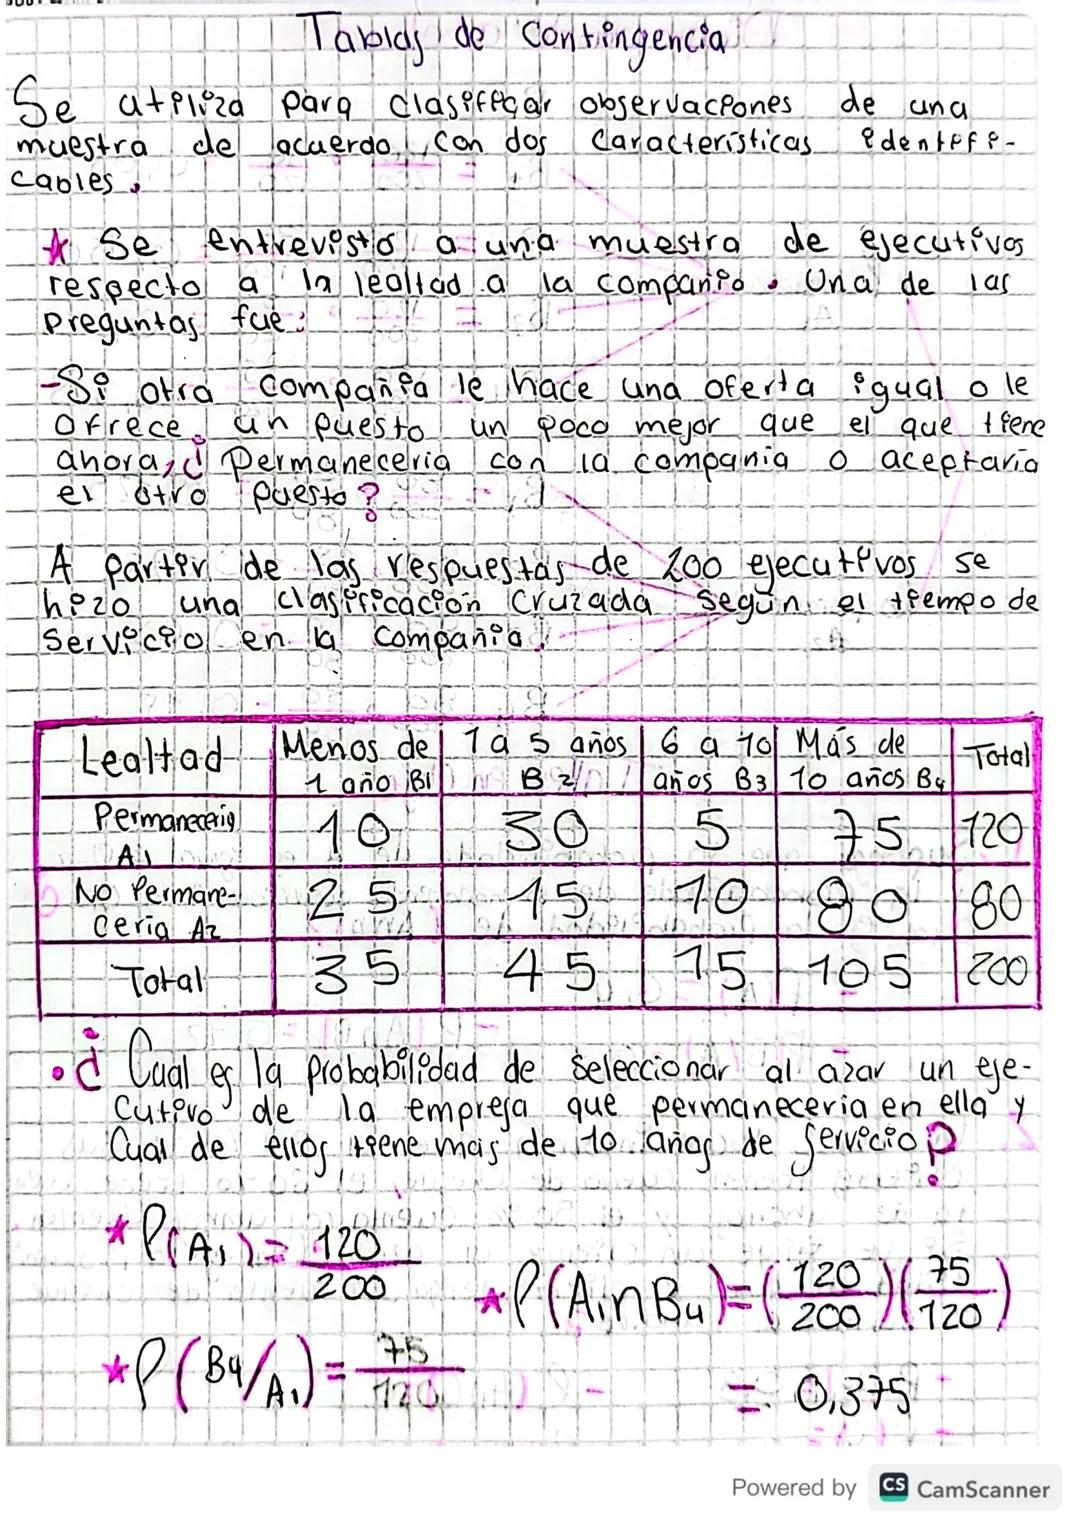 Tablas de Contingencia
Se utiliza para clasificar observaciones de una
muestra de acuerdo con dos características identifi-
cables.
* Se entrevistó a una muestra de ejecutivos
respecto a la lealtad a la compañia. Una de las
preguntas fue:
-Si otra compañia le hace una oferta igual o le
ofrece un puesto un poco mejor que el que tiene
ahora, ¿Permaneceria con la compania o aceptaria
el otro puesto?
A partir de las respuestas de 200 ejecutivos se
hizo una clasificación cruzada según el tiempo de
servicio en la compañia.
Lealtad Menos de 1 año B1 1 a 5 años B2 6 a 10 años B3 Más de 10 años B4 Total
Permaneceria A1 10 30 5 75 120
No Permane-ceria A2 25 15 10 80 80
Total 35 45 15 105 200
• ¿Cual es la probabilidad de seleccionar al azar un eje-
cutivo de la empresa que permaneceria en ella y
Cual de ellos tiene mas de 10 años de servicio?
* P(A1) = 120/200
* P(A1∩B4) = (120/200)(75/120)
* P(B4/A1) = 75/120
= 0,375
Powered by CS CamScanner